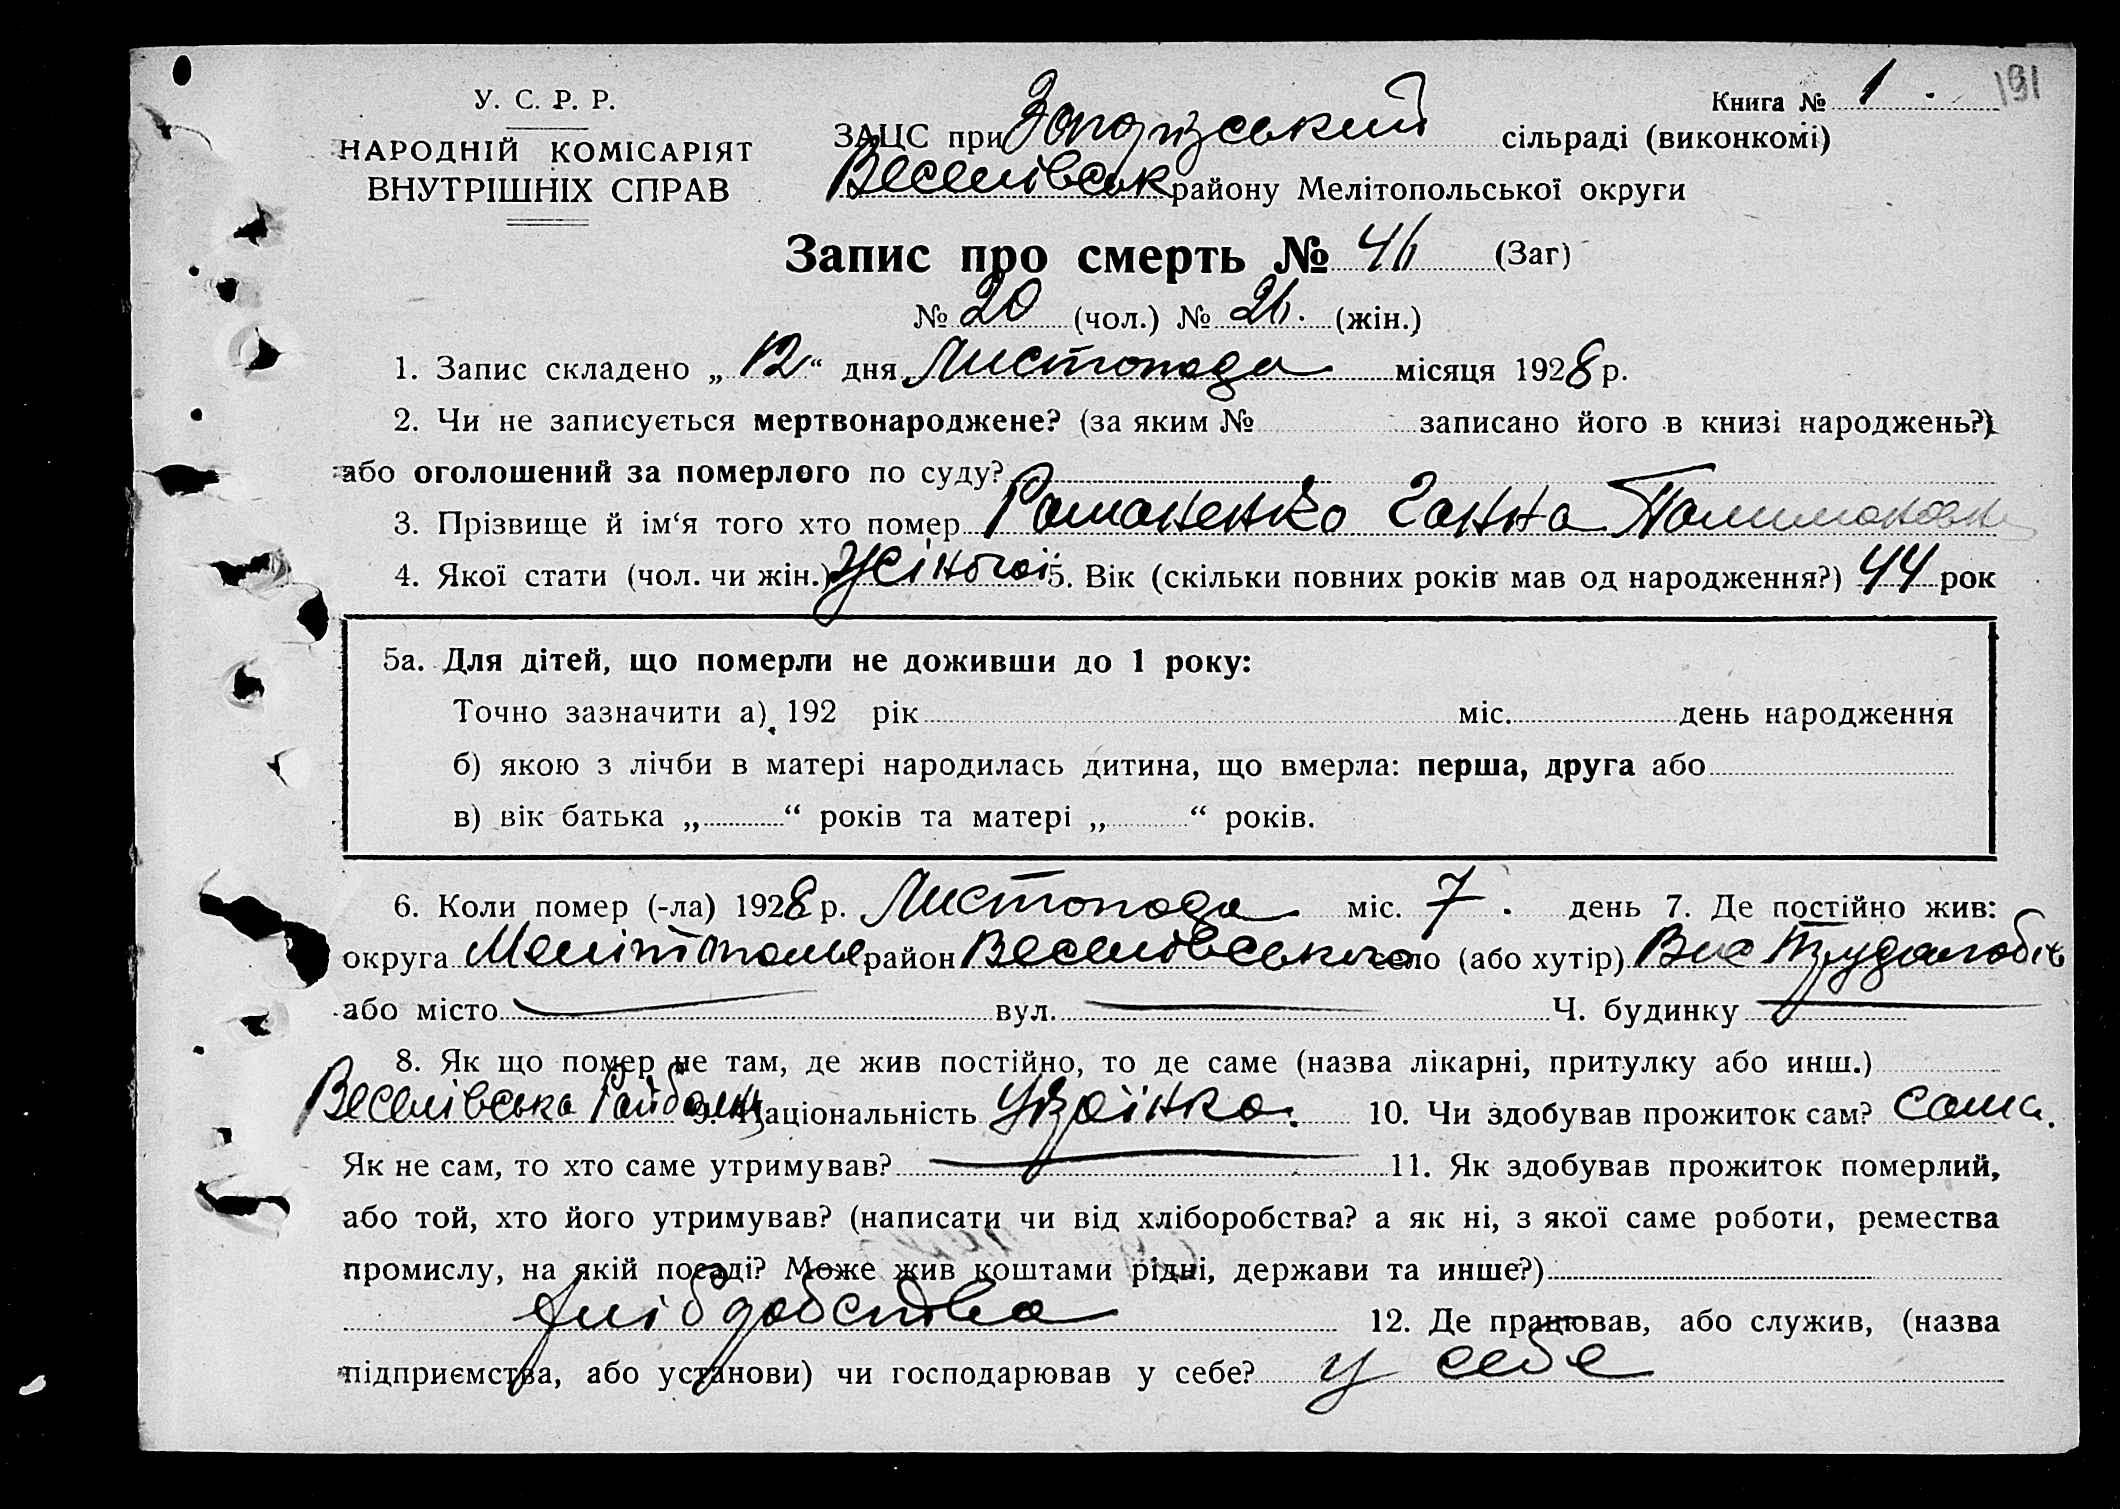 У. С. Р. Р.
НАРОДНІЙ КОМІСАРІЯТ
ВНУТРІШНІХ СПРАВ
Книга № 1. 191
ЗАЦС при сільраді (виконкомі)
Веселівськ району Мелітопольської округи
Запис про смерть № 46 (Заг)
№ 20 (чол.) № 26. (жін.)
1. Запис складено „12“ дня Листопада місяця 1928 р.
2. Чи не записується мертвонароджене? (за яким № записано його в книзі народжень?)
або оголошений за померлого по суду?
3. Прізвище й ім‘я того хто помер Романенко Ганна
4. Якої стати (чол. чи жін.) жіночої 5. Вік (скільки повних років мав од народження?) 44 рок
5а. Для дітей, що померли не доживши до 1 року:
Точно зазначити а) 192 рік міс. день народження
б) якою з лічби в матері народилась дитина, що вмерла: перша, друга або
в) вік батька „ “ років та матері „ “ років.
6. Коли помер (-ла) 1928 р. Листопада міс. 7. день 7. Де постійно жив:
округа район Веселівського село (або хутір) Вис Трудолюбів
або місто вул. Ч. будинку
8. Як що помер не там, де жив постійно, то де саме (назва лікарні, притулку або инш.)
Веселівська Райбольн 9. Національність Україінка. 10. Чи здобував прожиток сам? сама.
Як не сам, то хто саме утримував? 11. Як здобував прожиток померлий,
або той, хто його утримував? (написати чи від хліборобства? а як ні, з якої саме роботи, ремества
промислу, на якій посаді? Може жив коштами рідні, держави та инше?)
хлібробства 12. Де працював, або служив, (назва
підприємства, або установи) чи господарював у себе? у себе